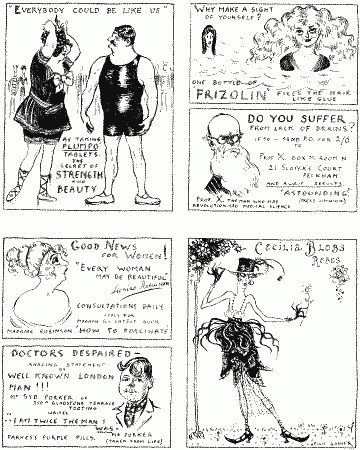 "EVERYBODY COULD BE LIKE US"
BY TAKING
PLUMPO
TABLETS
THE
SECRET OF
STRENGTH
AND
BEAUTY
WHY MAKE A SIGHT
OF YOURSELF?
ONE BOTTLE OF
FRIZOLIN FIXES THE HAIR
LIKE GLUE
DO YOU SUFFER
FROM LACK OF BRAINS?
IF SO - SEND P.O. FOR 2/6
TO
PROF X. BOX 30 ROOM N
21 SLOPER'S COURT
PECKHAM
AND AWAIT RESULTS.
"ASTOUNDING!"
(PRESS OPINION)
PROF X. THE MAN WHO HAS
REVOLUTIONISED MEDICAL SCIENCE
GOOD NEWS
FOR WOMEN!
"EVERY WOMAN
MAY BE BEAUTIFUL"
CONSULTATIONS DAILY
APPLY FOR
MADAM R'S LATEST BOOK
MADAME ROBINSON "HOW TO FASCINATE"
DOCTORS DESPAIRED -
AMAZING STATEMENT
BY
WELL KNOWN LONDON
MAN!!!
MR SYD PORKER OF
GLADSTONE TERRACE
TOOTING
WRITES
"I AM TWICE THE MAN I
WAS"
PARKES'S PURPLE PILLS.
MR PORKER
(TAKEN FROM LIFE)
CECILIA BLOBBS
ROBES